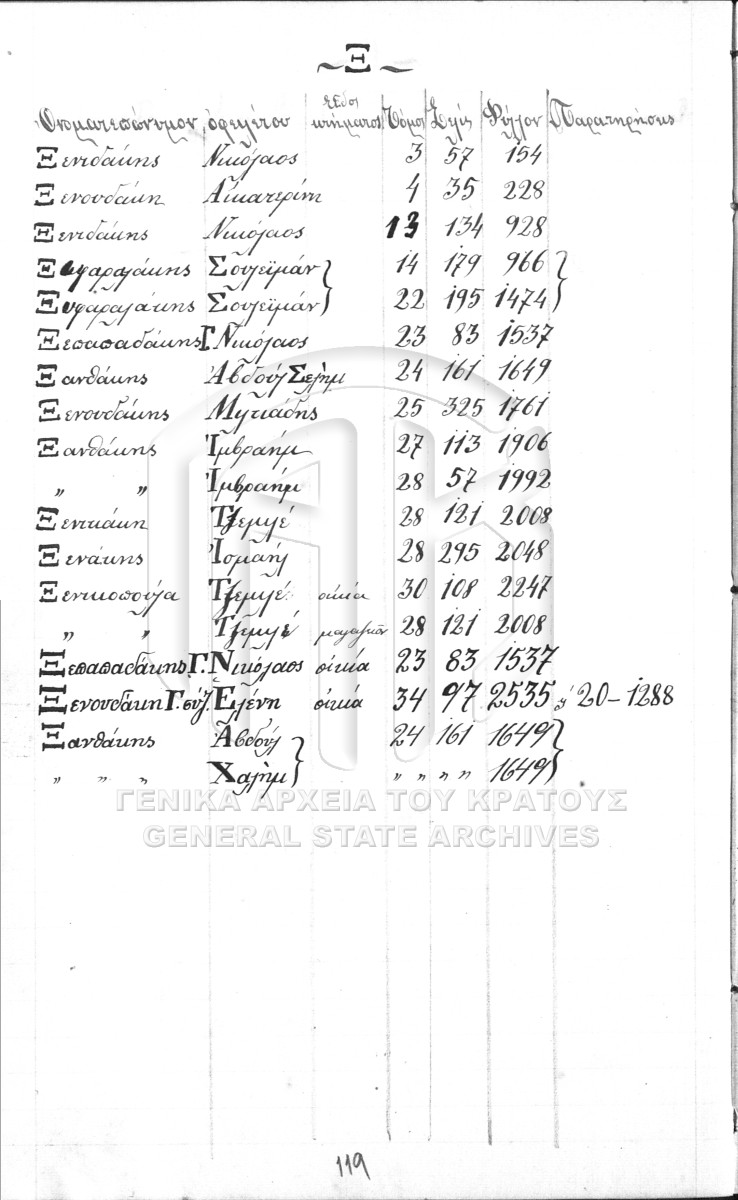 ~ Ξ ~
Ονοματεπώνυμον ὀφειλέτου εἶδος κτήματος Τόμος Σελίς Φύλλον Παρατηρήσεις
Ξενιδάκης Νικόλαος 3 57 154
Ξενουδάκη Αἰκατερίνη 4 35 228
Ξενιδάκης Νικόλαος 13 134 928
Σουλεϊμάν } 14 179 966
Σουλεϊμάν } 22 195 1474
Ξεπαπαδάκης Γ. Νικόλαος 23 83 1537
Ξανθάκης Ἀβδούλ Σελήμ 24 161 1649
Ξενουδάκης Μιλτιάδης 25 325 1761
Ξανθάκης Ἰμβραήμ 27 113 1906
„ „ Ἰμβραήμ 28 57 1992
Ξενικάκη Τζεμιλέ 28 121 2008
Ξενάκης Ἰσμαήλ 28 295 2048
Ξενικοπούλα Τζεμιλέ οἰκία 30 108 2247
„ „ Τζεμιλέ 28 121 2008
Ξεπαπαδάκης Γ. Νικόλαος οἰκία 23 83 1537
Ξενουδάκη Γ. σύζ. Ἑλένη οἰκία 34 97 2535 ἤ 20-1288
Ξανθάκης Ἀβδούλ } 24 161 1649 }
„ „ „ Χαλήμ } „ „ „ „ 1649 }
ΓΕΝΙΚΑ ΑΡΧΕΙΑ ΤΟΥ ΚΡΑΤΟΥΣ
GENERAL STATE ARCHIVES
119